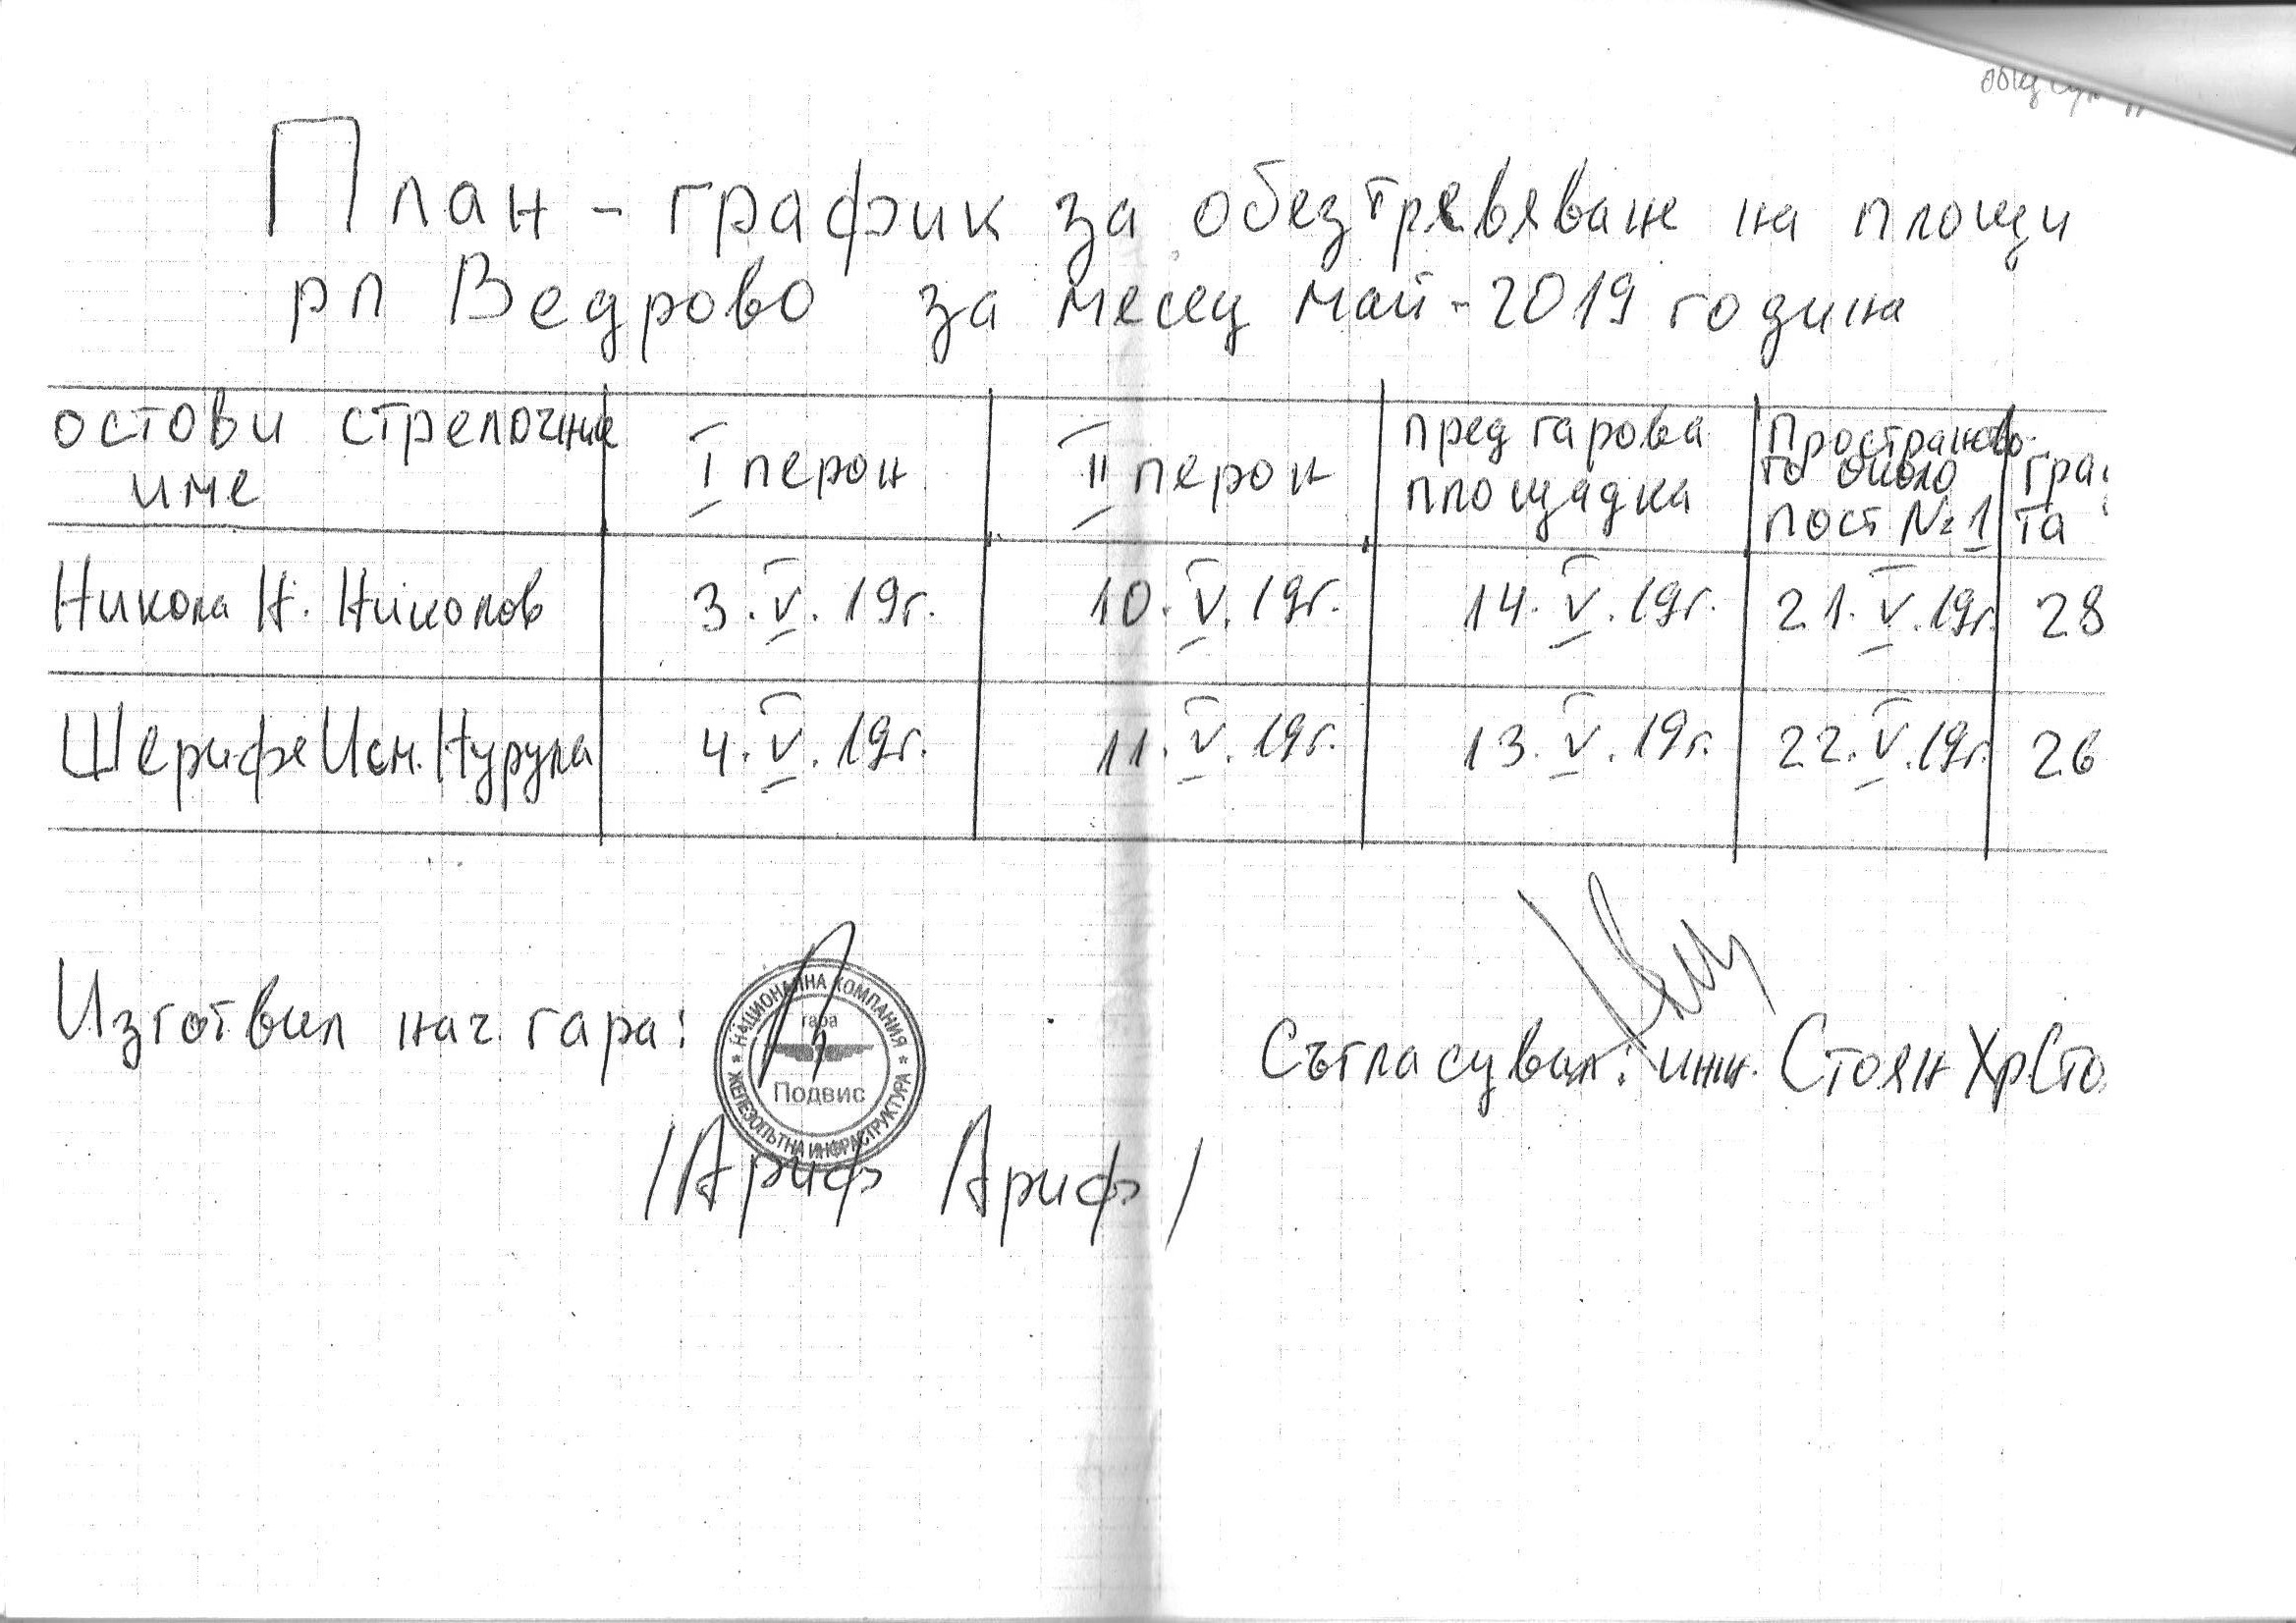 План - график за обезтревяване на площи
рп Ведрово за месец май - 2019 година
остови стрелочник
име
I перон
II перон
пред гарова
площадка
Пространство-
то около
пост № 1
гра
та
Никола Н. Николов 3. V. 19г. 10. V. 19г. 14. V. 19г. 21. V. 19г. 28
Шерифе Исм. Нурула 4. V. 19г. 11. V. 19г. 13. V. 19г. 22. V. 19г. 26
Изготвил нач. гара:
НАЦИОНАЛНА КОМПАНИЯ
гара
Подвис
* ЖЕЛЕЗОПЪТНА ИНФРАСТРУКТУРА *
/Ариф Ариф/
Съгласувал: инж. Стоян Хр Сто